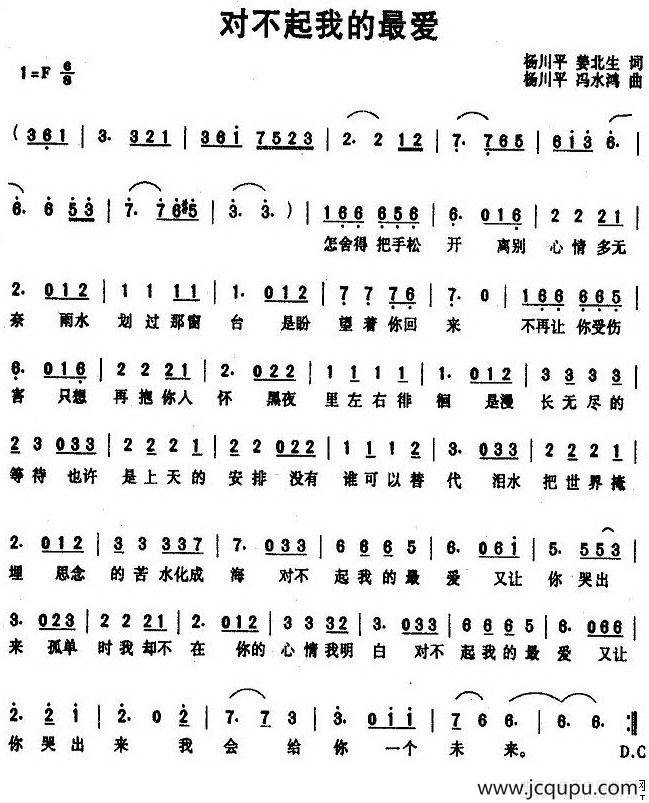 对不起我的最爱
1=F 6/8
杨川平 姜北生 词
杨川平 冯水鸿 曲
( 361 | 3. 321 | 361 7523 | 2. 2 12 | 7. 765 | 613 6. |
6. 6 53 | 7. 76#5 | 3. 3. ) | 166 656 | 6. 016 | 2 2 21 |
怎舍得 把手松 开 离别 心情多无
2. 012 | 1 1 11 | 1. 012 | 7 7 76 | 7. 0 | 166 665 |
奈 雨水 划过那窗 台 是盼 望着你回 来 不再让 你受伤
6. 016 | 2 2 21 | 2. 022 | 1 1 1 1 | 1. 012 | 3 3 3 3 |
害 只想 再抱你人 怀 黑夜 里左右徘 徊 是漫 长无尽的
2 3 033 | 2 2 2 1 | 2 2 022 | 1 1 1 2 | 3. 033 | 2 2 2 1 |
等待 也许 是上天的 安排 没有 谁可以替 代 泪水 把世界掩
2. 012 | 3 3 337 | 7. 033 | 6 6 6 5 | 6. 061 | 5. 553 |
埋 思念 的苦水化成 海 对不 起我的最 爱 又让 你哭出
3. 023 | 2 2 21 | 2. 012 | 3 3 32 | 3. 033 | 6 6 6 5 | 6. 066 |
来 孤单 时我却不 在 你的 心情我明 白 对不 起我的最 爱 又让
2. 2 1 | 2. 0 2 | 7. 7 3 | 3. 011 | 7 6 6. | 6. 6. :||
你 哭出 来 我 会 给 你 一个 未 来。 D.C
www.jcqupu.com